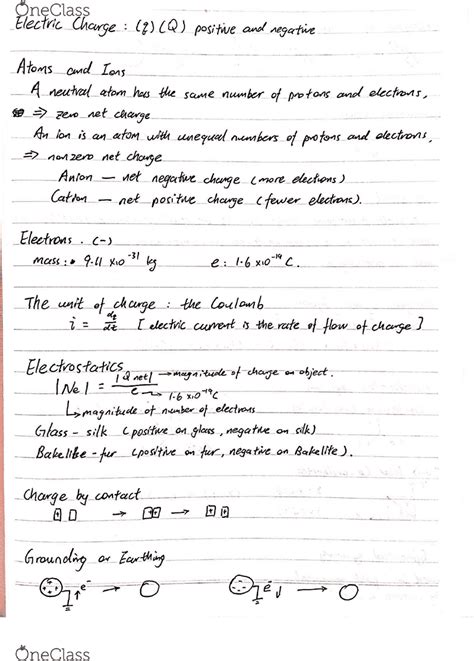 OneClass
Electric Charge : (q) (Q) positive and negative
Atoms and Ions
A neutral atom has the same number of protons and electrons,
⇒ zero net charge
An Ion is an atom with unequal numbers of protons and electrons,
⇒ nonzero net charge
Anion — net negative charge (more electrons)
Cation — net positive charge (fewer electrons).
Electrons . (-)
mass : 9.11 x10⁻³¹ kg e : 1.6 x10⁻¹⁹ C.
The unit of charge : the Coulomb
i = dq/dt [ electric current is the rate of flow of charge ]
Electrostatics
|Ne| = |Q net| / e → magnitude of charge on object.
→ 1.6 x10⁻¹⁹ C
↳ magnitude of number of electrons
Glass - silk (positive on glass, negative on silk)
Bakelite - fur (positive on fur, negative on Bakelite).
Charge by contact
Grounding or Earthing
e⁻ → e⁻ →
OneClass